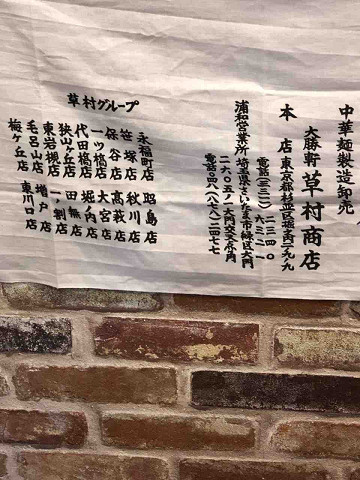 中華麺製造卸元
大勝軒 草村商店
本店 東京都杉並区堀南一ノ九ノ九
電話(三三一二)二三四〇
六三二一
浦和営業所 埼玉県さいたま市緑区大門
二六〇五ノ二大門交差点角
電話〇四八(八七八)二四七七
草村グループ
永福町店 昭島店
笹塚店 秋川店
保谷店 高萩店
一ツ橋店 大宮店
代田橋店 堀ノ内店
狭山ヶ丘店 田無店
東岩槻店 一ノ割店
毛呂山店 増戸店
梅ヶ丘店 東川口店